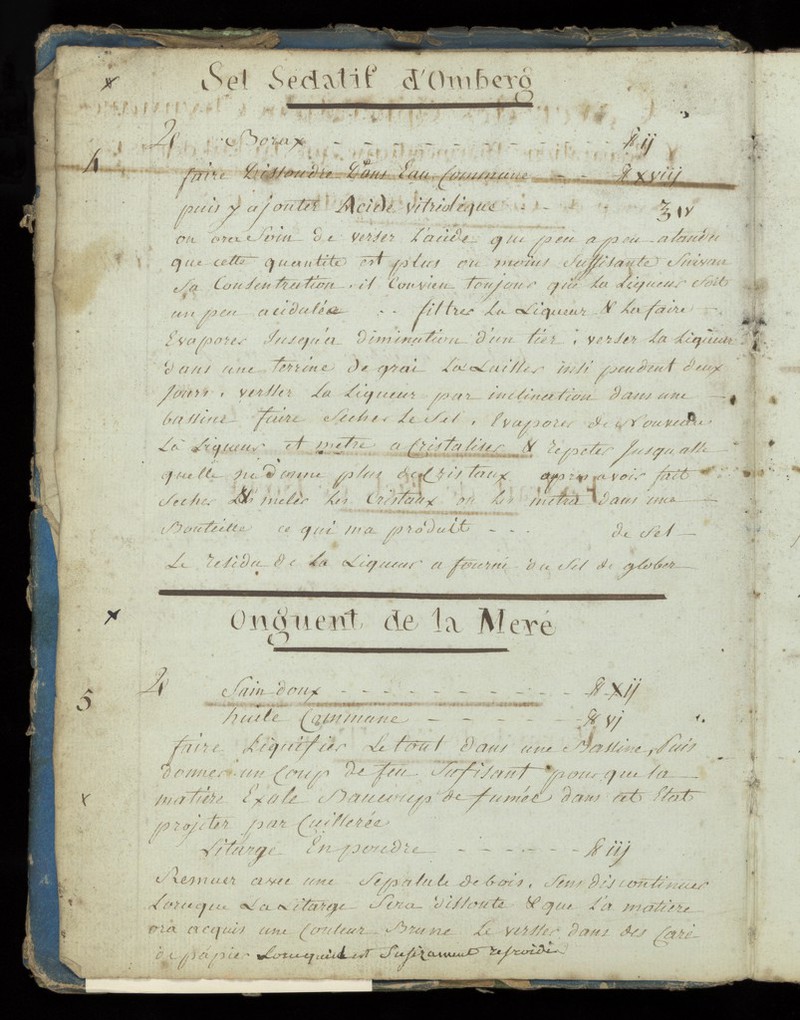 Sel Sedatif d'Omberg
4
♃ Borax - - - - - - - - - ℔ ij
faire Dissoudre Dans Eau Commune - - ℔ xviij
puis y ajouter Acide vitriolique - - - ʒ iv
on ora Soin de verser l'acide que peu a peu atandu
que cette quantité est plus ou moins Suffisante Suivan
Sa Consentration. il Convien toujour que la Liqueur Soit
un peu acidulée .. filtrer La Liqueur & La faire
Evaporer Jusqu'a diminution d'un tier; verser La Liqueur
dans une terrine de grai La Laisser insi pendent deux
Jours. versser La Liqueur par inclination dans une
bassine faire Secher Le Sel. Evaporer de Nouveau
La Liqueur et metre a Cristaliser & répeter Jusqu'a
quelle ne donne plus de Cristaux apres avoir fait
Secher & meler Les Cristaux on les metra dans une
Bouteille ce qui ma produit - - - de Sel
Le residu de La Liqueur a fourni du Sel de glober
Onguent de la Meré
5
♃ Sain doux - - - - - - - - - ℔ xij
huile Commune - - - - - ℔ vj
faire Liquifier Le tout dans une Bassine, Puis
donner un Coup de feu Sufisant pour que la
matiere Exale Baucoup de fumée dans cet Etat
projeter par Cuillerée
Litarge En poudre - - - - - - ℔ iij
Remuer avec une Sepatule de bois. Sens discontinuer
Lorsque La Litarge Sera dissoute & que La matiere
ora acquis une Couleur Brune Le versser dans des Care
de papier Lorsquil est Sufizament refroidie